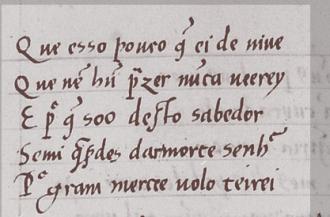 Que esso pouco q̃ ei de uiue
Que nẽ hũ p̃zer nũca ueerey
E p̃ q̃ soo desto sabedor
Semi q̃p̃des darmorte senhꝰ
Pᵃ gram merçe uolo teirei